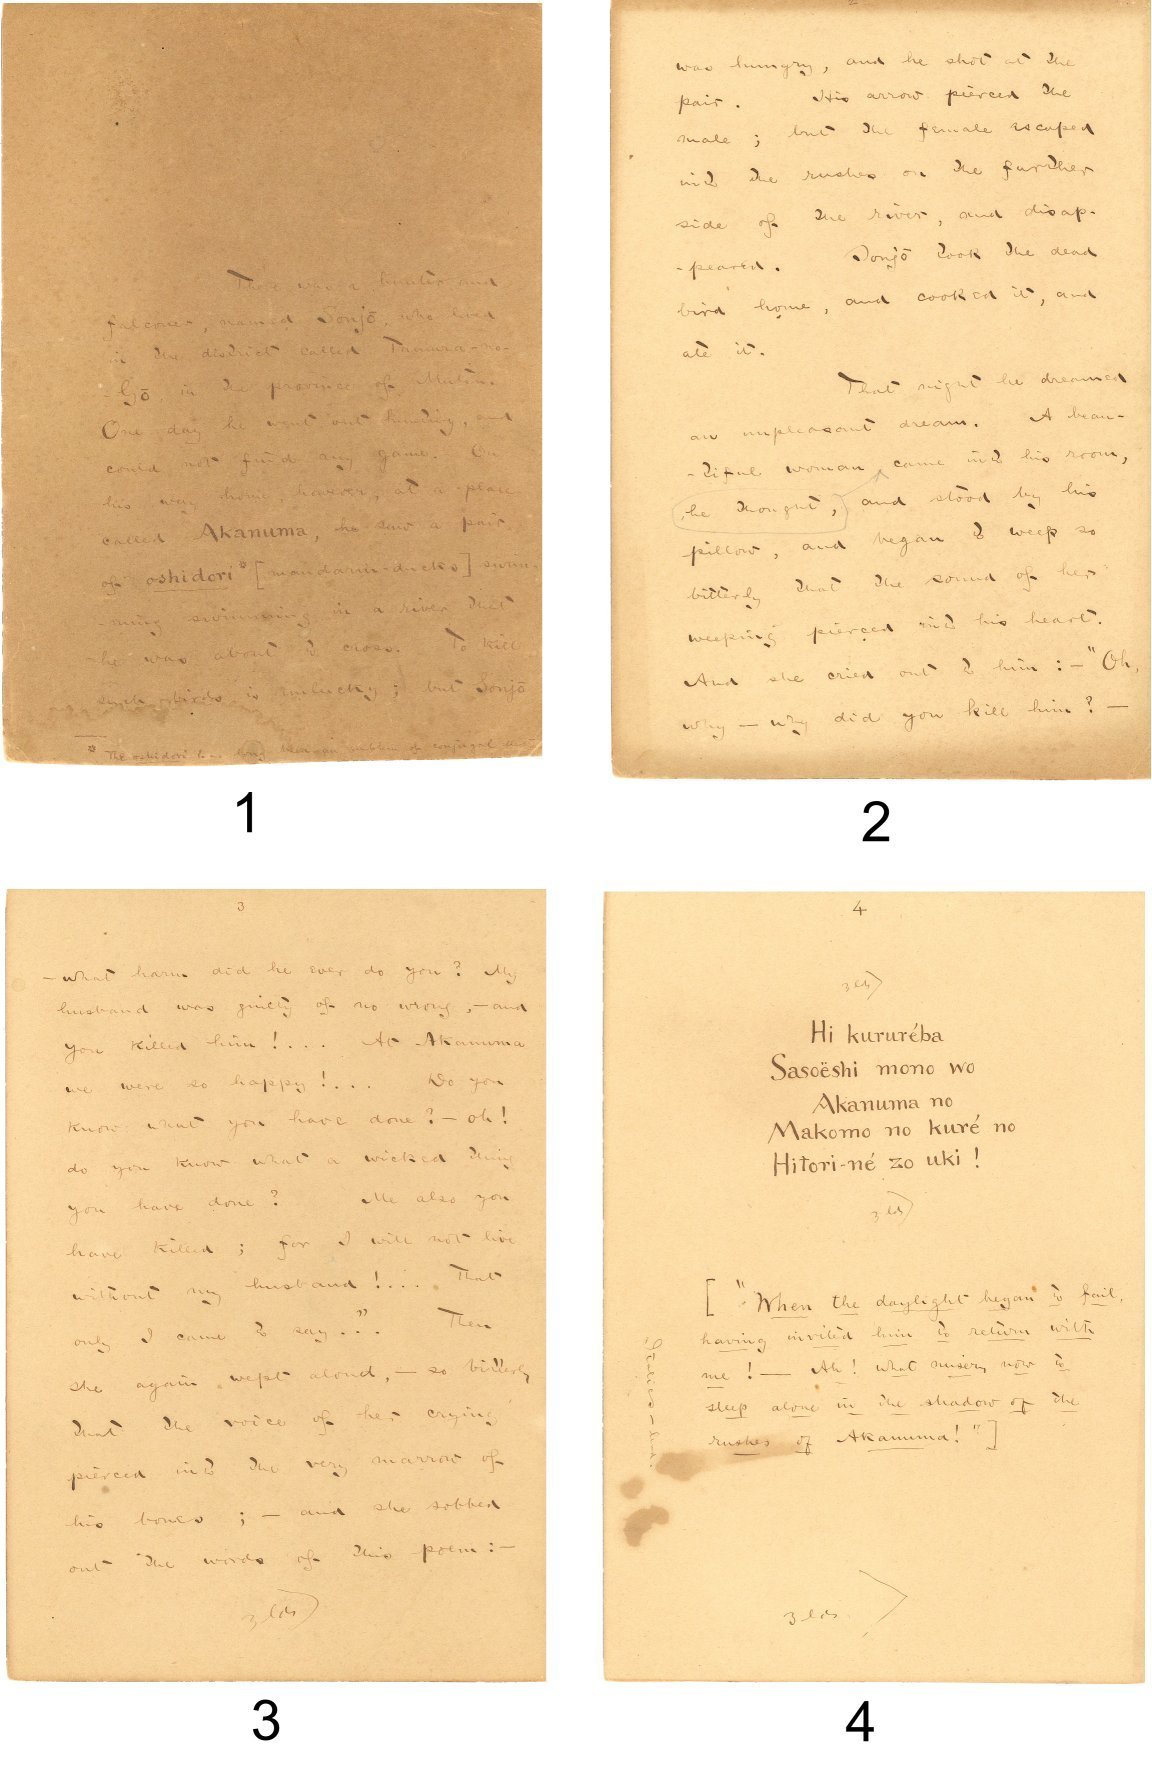 There was a hunter and
falconer, named Sonjō, who lived
in the district called Tamura-no-
-Gō in the province of Mutsu.
One day he went out hunting, and
could not find any game. On
his way home, however, at a place
called Akanuma, he saw a pair
of oshidori* [mandarin-ducks] swim-
-ming swimming in a river that
he was about to cross. To kill
such birds is unlucky; but Sonjō
* The oshidori has long been an emblem of conjugal
1
2
was hungry, and he shot at the
pair. His arrow pierced the
male; but the female escaped
into the rushes on the further
side of the river, and disap-
-peared. Sonjō took the dead
bird home, and cooked it, and
ate it.
That night he dreamed
an unpleasant dream. A beau-
-tiful woman came into his room,
he thought, and stood by his
pillow, and began to weep so
bitterly that the sound of her
weeping pierced into his heart.
And she cried out to him:—"Oh,
why — why did you kill him?—
2
3
—what harm did he ever do you? My
husband was guilty of no wrong,—and
you killed him!... At Akanuma
we were so happy!... Do you
know what you have done?—oh!
do you know what a wicked thing
you have done? Me also you
have killed; for I will not live
without my husband!... That
only I came to say."... Then
she again wept aloud,—so bitterly
that the voice of her crying
pierced into the very marrow of
his bones;— and she sobbed
out the words of this poem:—
3 lds
3
4
3 lds
Hi kururéba
Sasoëshi mono wo
Akanuma no
Makomo no kuré no
Hitori-né zo uki!
3 lds
["When the daylight began to fail,
having invited him to return with
me!— Ah! what misery now to
sleep alone in the shadow of the
rushes of Akanuma!"]
Italics
3 lds.
4